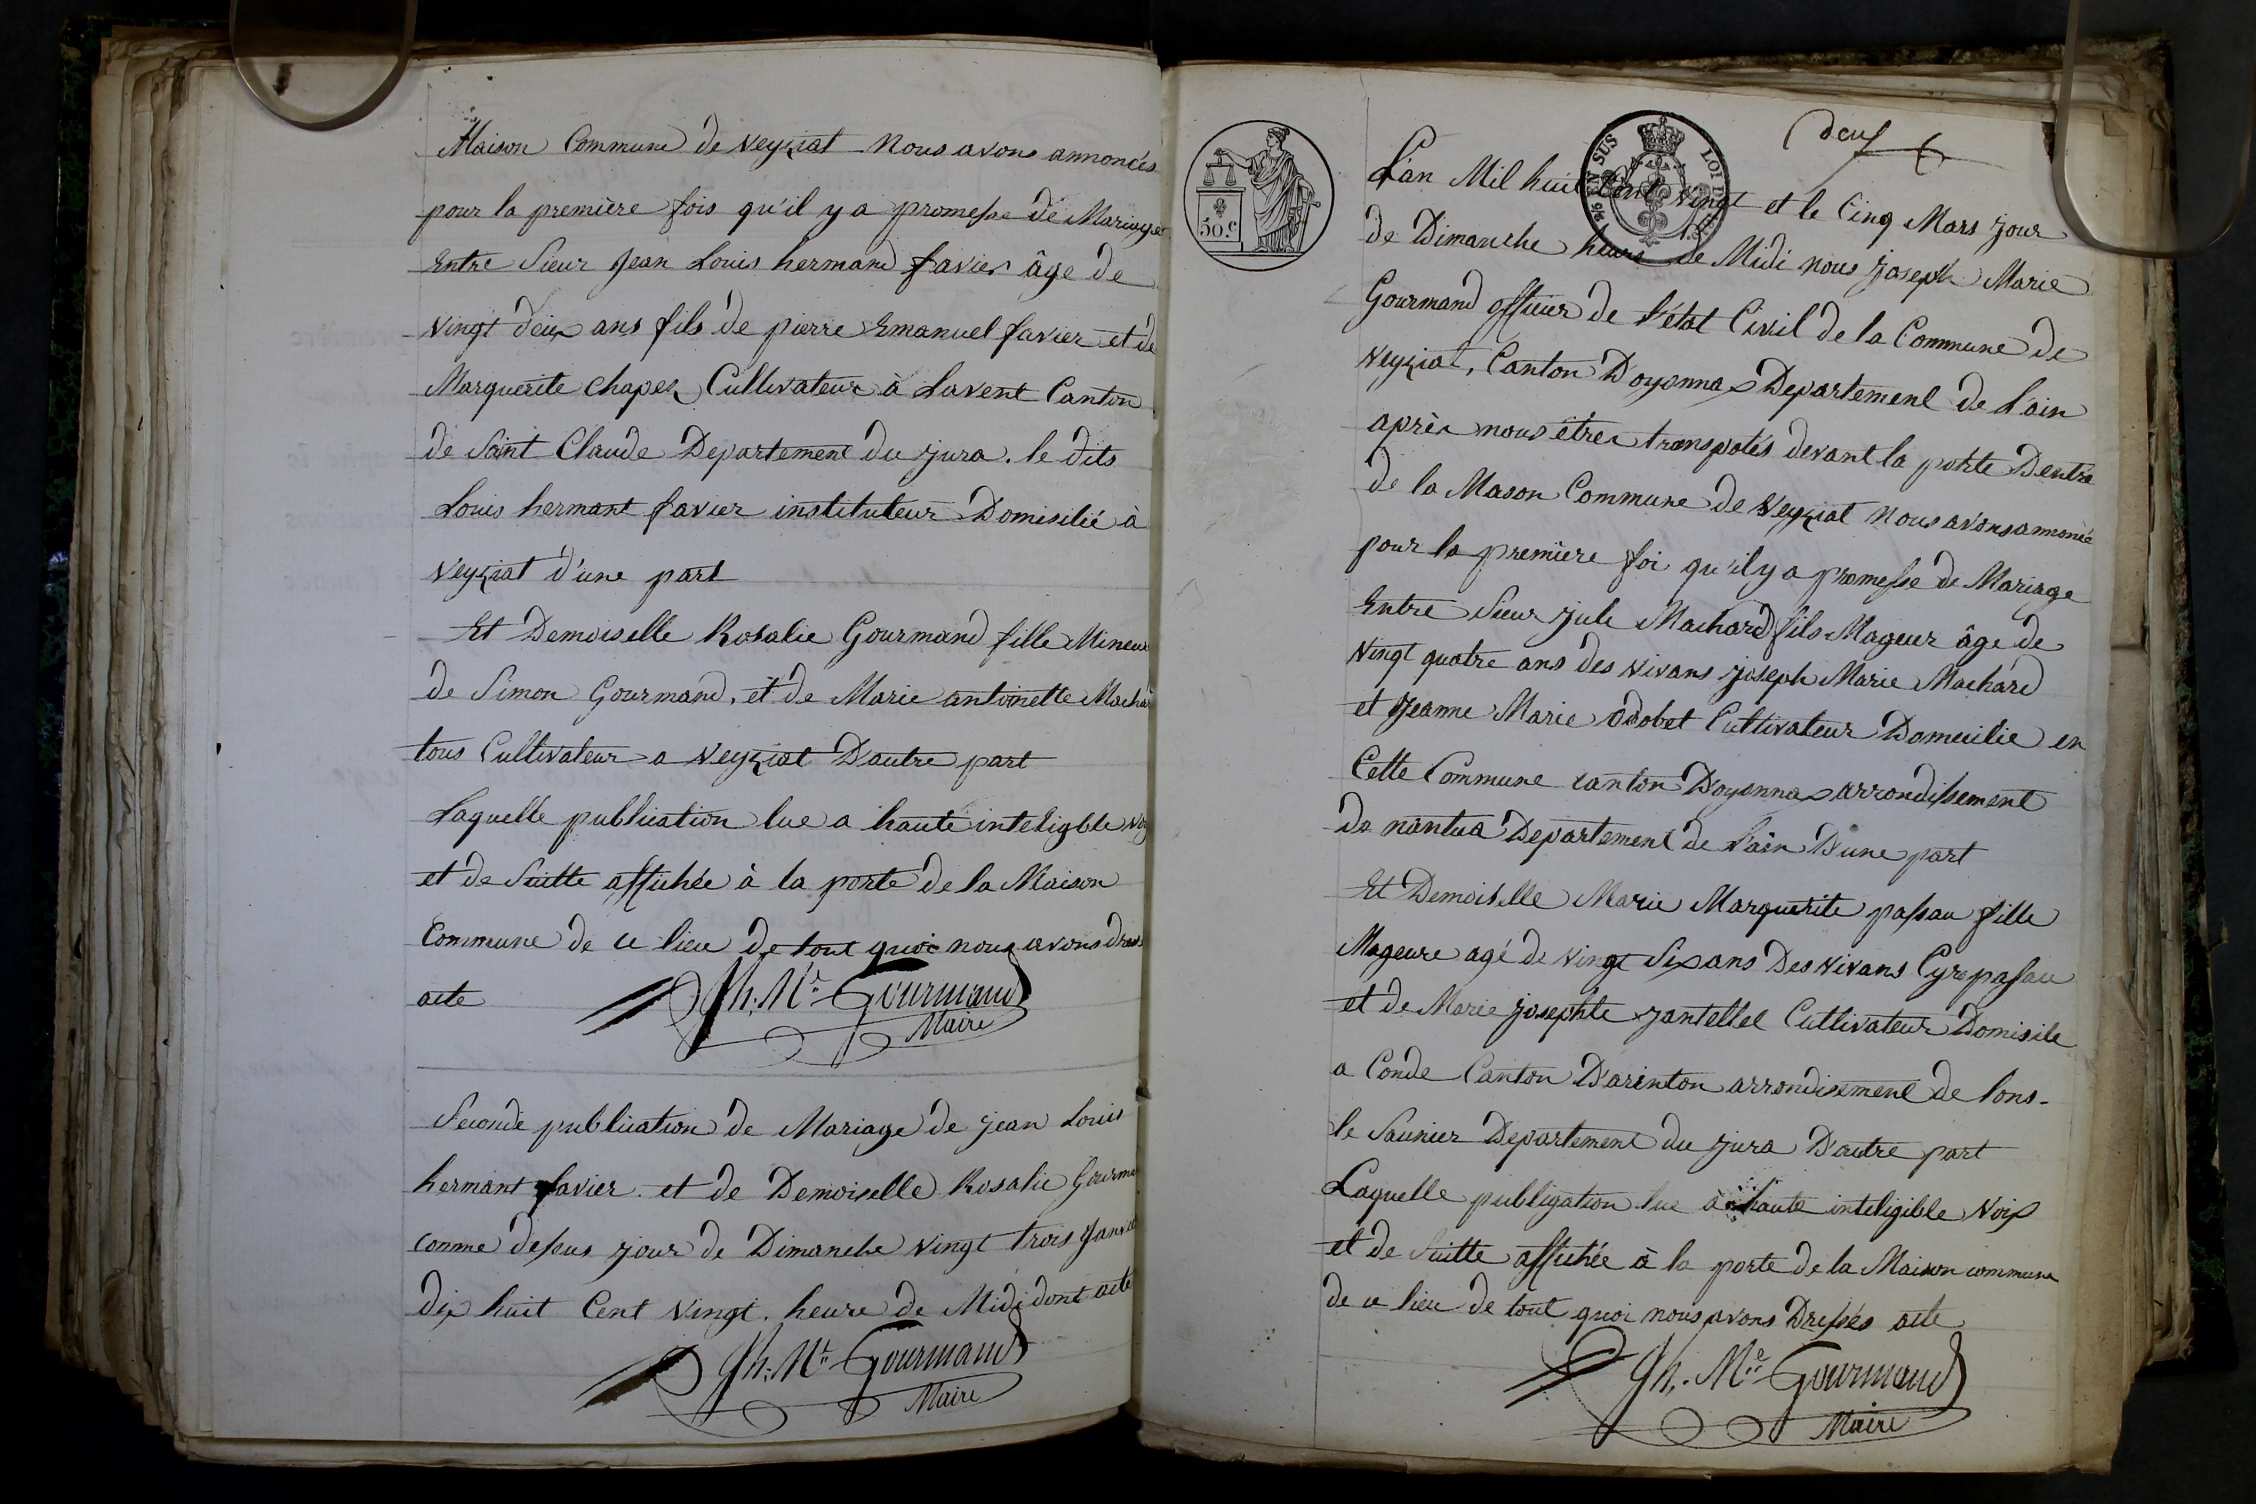 Maison Commune de Veyziat Nous avons annoncés
pour la première fois qu'il y a promesse de Mariage
Entre Sieur Jean Louis hermand favier âge de
vingt deux ans fils de pierre Emanuel favier et de
Marguerite chapez Cultivateur à Lavent Canton
de Saint Claude Departement du jura. le dits
Louis hermant favier instituteur Domisilié à
Veyziat d'une part
Et Demoiselle Rosalie Gourmand fille Mineur
de Simon Gourmand, et de Marie antoinette Machar
tous Cultivateur a Veyziat D'autre part
Laquelle publication lue a haute inteligble voi
et de Suitte affichée à la porte de la Maison
Commune de ce lieu de tout quoi nous avons dressé
acte
Jh: Mie Gourmand
Maire
Seconde publication de Mariage de jean Louis
hermant favier. et de Demoiselle Rosalie Gourma
comme dessus jour de Dimanche vingt trois Janvier
dix huit Cent vingt. heure de Midi dont acte
Jh: Mie Gourmand
Maire
deux
EN SUS
LOI D
50.c
L'an Mil huit Cent vingt et le Cinq Mars jour
de Dimanche heure de Midi nous joseph Marie
Gourmand officier de l'état Civil de la Commune de
Veyziat, Canton D'oyonnax Departement de L'ain
après nous êtres transpotés devant la porte Dentré
de la Mason Commune de Veyziat Nous avons annoncé
pour la première foi qu'il y a promesse de Mariage
Entre Sieur jule Machard fils Mageur âge de
vingt quatre ans des vivans joseph Marie Machard
et Jeanne Marie odobet Cultivateur Domicilie en
Cette Commune canton D'oyonnax arrondissement
de nantua Departement de L'ain D'une part
Et Demoiselle Marie Marguerite passau fille
Mageure agé de vingt Six ans Des vivans Cyre passau
et de Marie josephte jantellet Cultivateur Domisile
a Conde Canton D'arinton arrondisement de lons-
le Saunier Departement du jura D'autre part
Laquelle publigation lue à haute inteligible Voix
et de Suitte affichée à la porte de la Maison commune
de ce lieu de tout quoi nous avons Dressés acte
Jh. Mie Gourmand
Maire